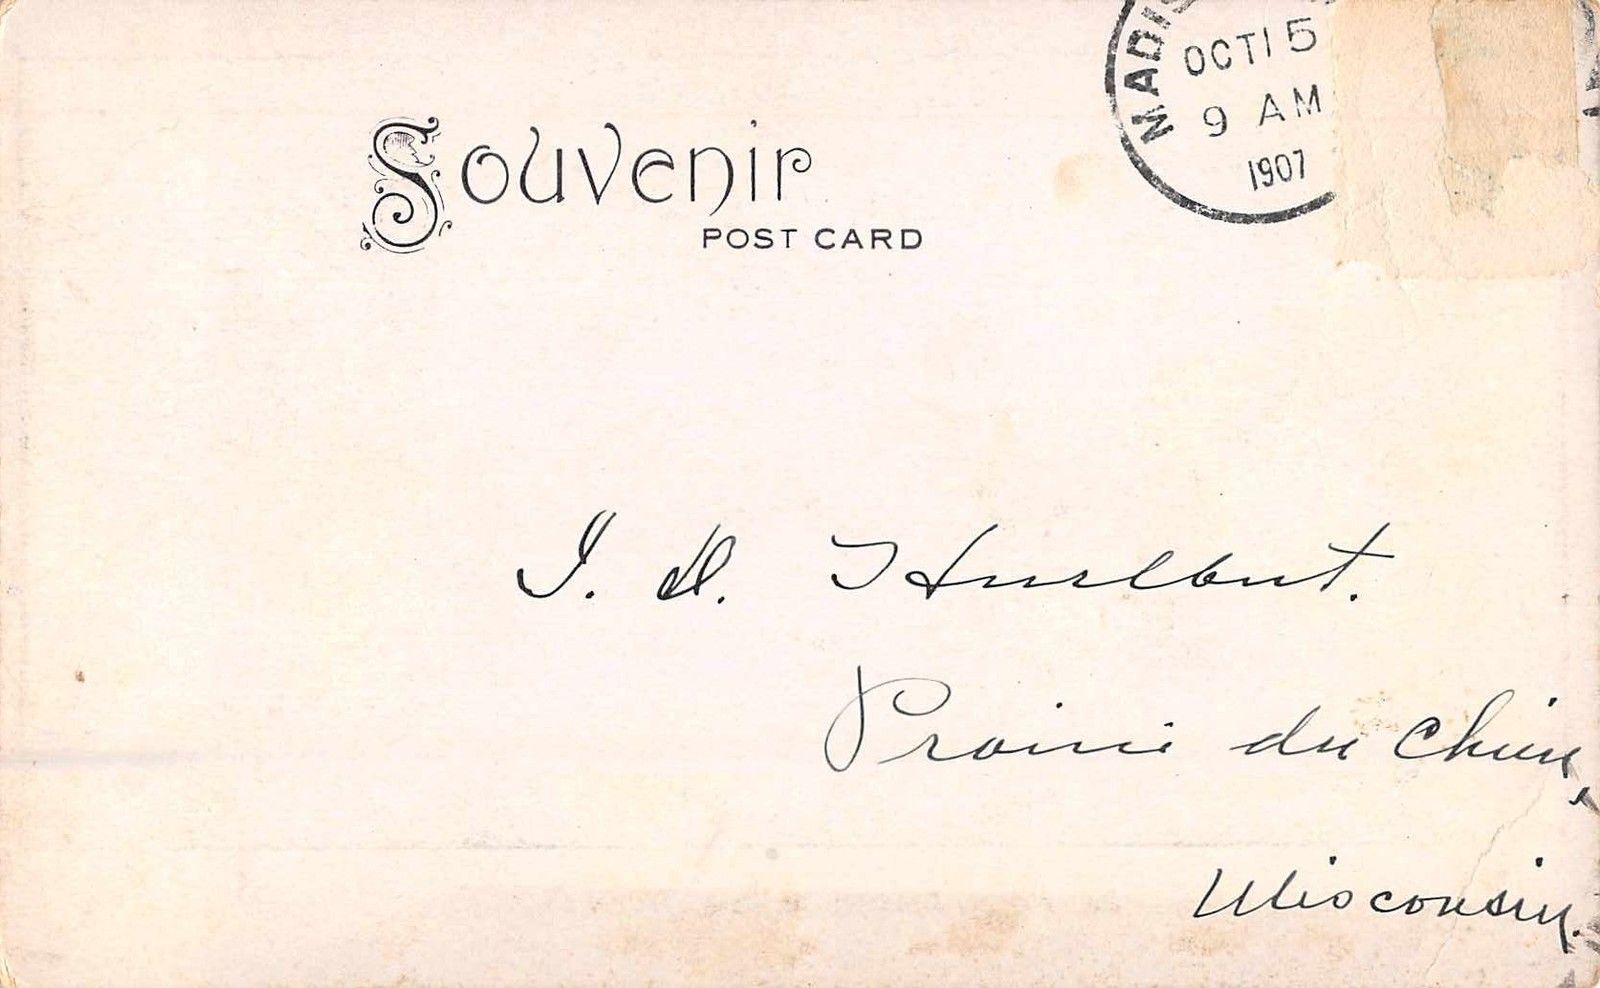 MADIS
OCT 15
9 AM
1907
Souvenir
POST CARD
I. D. Hurlbut.
Prairie du Chien,
Wisconsin.